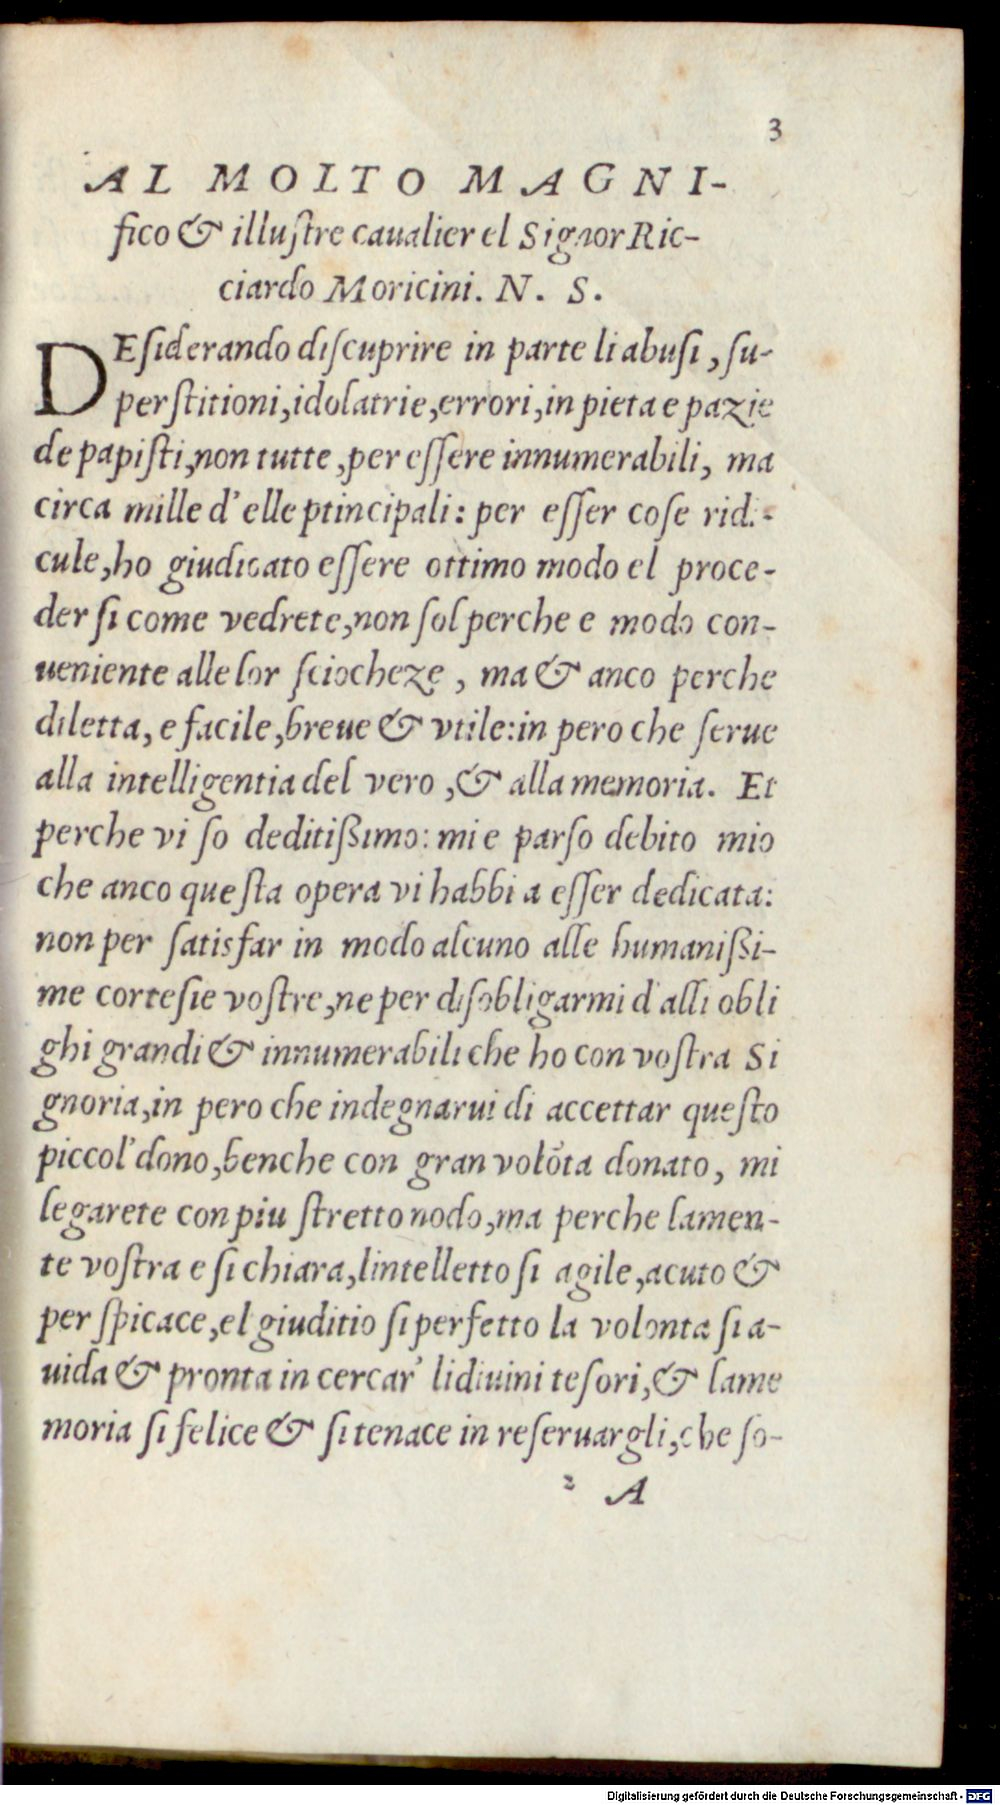 3
AL MOLTO MAGNI-
fico & illuſtre caualier el Signor Ric-
ciardo Moricini. N. S.
DEſiderando diſcuprire in parte li abuſi, ſu-
perſtitioni, idolatrie, errori, in pieta e pazie
de papiſti, non tutte, per eſſere innumerabili, ma
circa mille d'elle ptincipali: per eſſer coſe ridi-
cule, ho giudicato eſſere ottimo modo el proce-
der ſi come vedrete, non ſol perche e modo con-
ueniente alle lor ſciocheze, ma & anco perche
diletta, e facile, breue & vtile: in pero che ſerue
alla intelligentia del vero, & alla memoria. Et
perche vi ſo deditiſsimo: mi e parſo debito mio
che anco queſta opera vi habbi a eſſer dedicata:
non per ſatisfar in modo alcuno alle humaniſsi-
me corteſie voſtre, ne per diſobligarmi d'alli obli
ghi grandi & innumerabili che ho con voſtra Si
gnoria, in pero che indegnarui di accettar queſto
piccol' dono, benche con gran volōta donato, mi
legarete con piu ſtretto nodo, ma perche lamen-
te voſtra e ſi chiara, lintelletto ſi agile, acuto &
perſpicace, el giuditio ſi perfetto la volonta ſi a-
uida & pronta in cercar' li diuini teſori, & lame
moria ſi felice & ſi tenace in reſeruargli, che ſo-
2 A
Digitalisierung gefördert durch die Deutsche Forschungsgemeinschaft - DFG